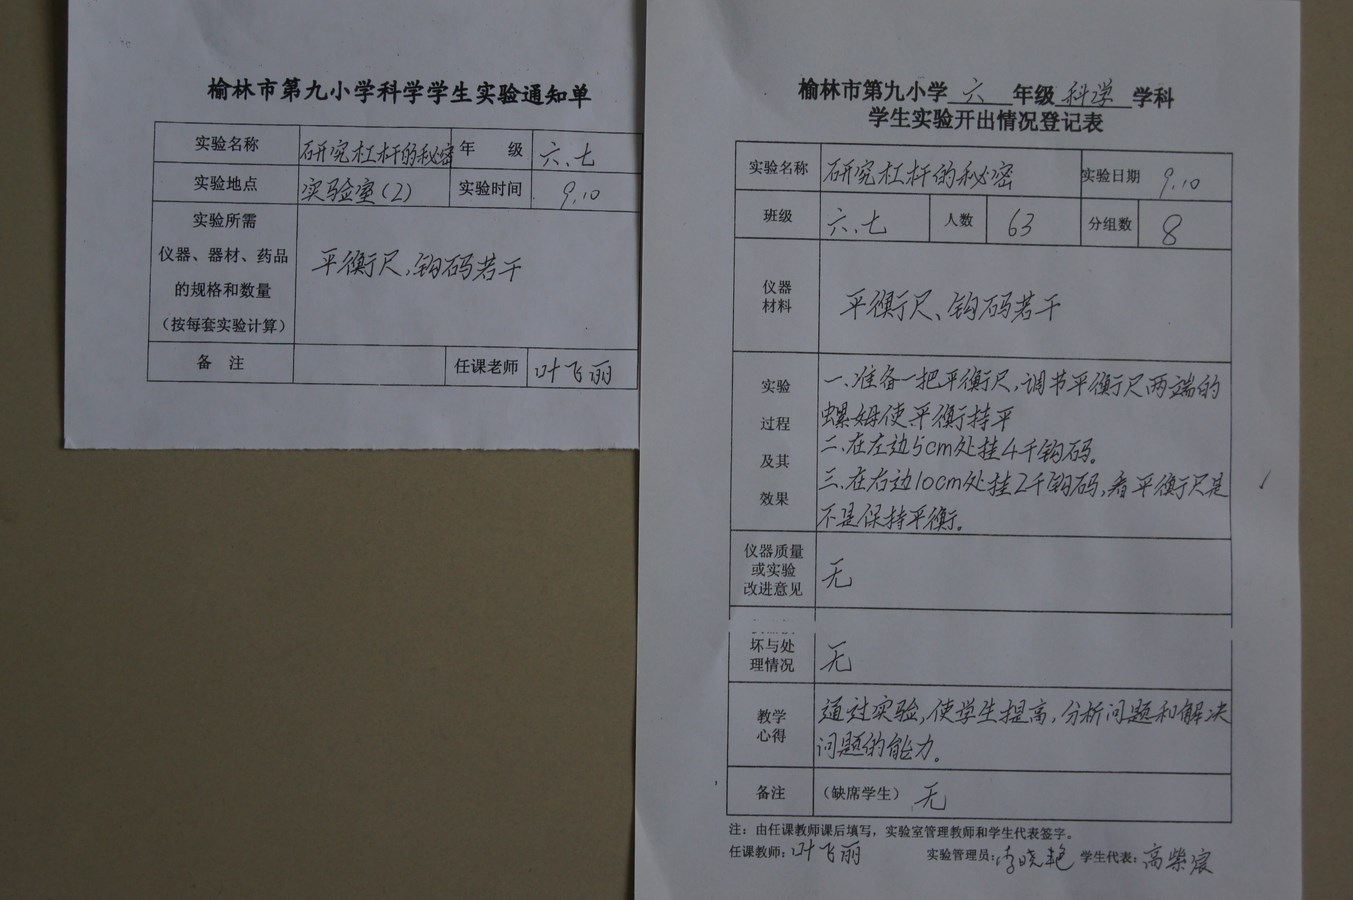 榆林市第九小学科学学生实验通知单
实验名称 研究杠杆的秘密 年 级 六、七
实验地点 实验室(2) 实验时间 9.10
实验所需
仪器、器材、药品
的规格和数量
(按每套实验计算)
平衡尺,钩码若干
备 注 任课老师 叶飞丽
榆林市第九小学 六 年级 科学 学科
学生实验开出情况登记表
实验名称 研究杠杆的秘密 实验日期 9.10
班级 六、七 人数 63 分组数 8
仪器
材料
平衡尺、钩码若干
实验
过程
及其
效果
一、准备一把平衡尺,调节平衡尺两端的
螺姆使平衡持平
二、在左边5cm处挂4千钩码。
三、在右边10cm处挂2千钩码,看平衡尺是
不是保持平衡。
仪器质量
或实验
改进意见
无
坏与处
理情况
无
教学
心得
通过实验,使学生提高,分析问题和解决
问题的能力。
备注 (缺席学生) 无
注:由任课教师课后填写,实验室管理教师和学生代表签字。
任课教师:叶飞丽 实验管理员:李晓艳 学生代表:高柴宸